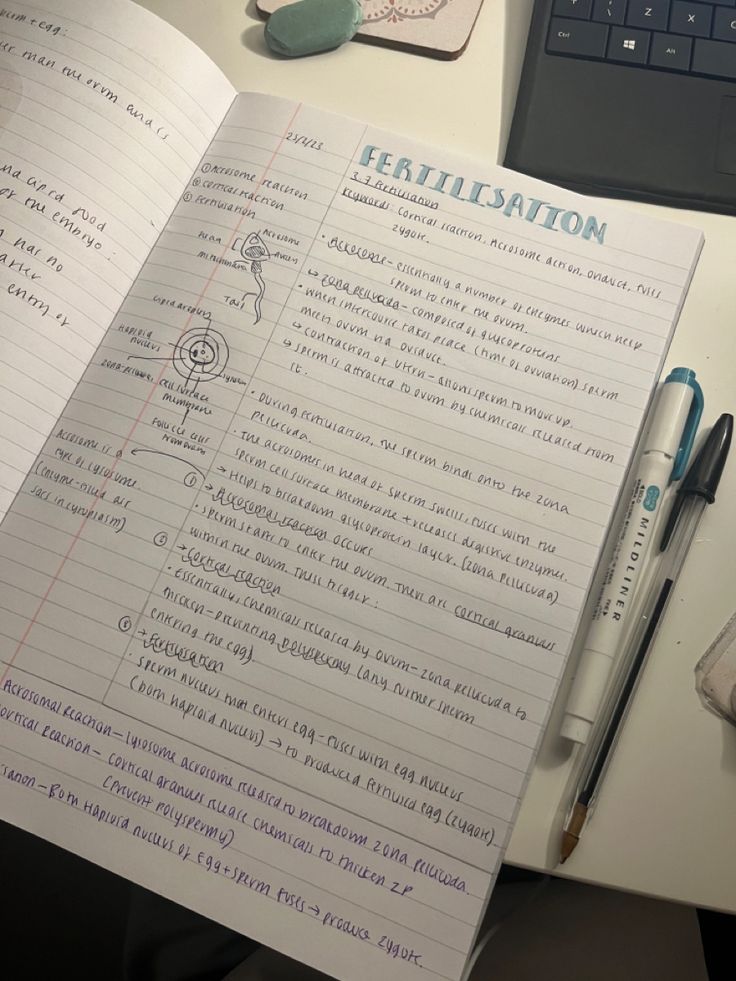 than the ovum and is
food
of the embryo:
has no
entry of
25/2/23
FERTILISATION
3.7 Fertilisation
Keywords: Cortical reaction, Acrosome action, oviduct, fuses
zygote.
① Acrosome reaction
② Cortical reaction
③ Fertilisation
Head
Acrosome
nucleus
mitochondria
Tail
Haploid
nucleus
zona-pellucida
cell surface
membrane
Follicle cells
from ovary
Acrosome is a
type of lysosome.
(enzyme-filled
sacs in cytoplasm)
• Acrosome - essentially a number of enzymes which help
sperm to enter the ovum.
↳ zona pellucida - composed of glycoproteins
• when intercourse takes place (time of ovulation) sperm
meets ovum via oviduct.
↳ contraction of uterus - allows sperm to move up.
↳ sperm is attracted to ovum by chemicals released from
it.
• During fertilisation, the sperm binds onto the zona
pellucida.
• The acrosomes in head of sperm swells, fuses with the
sperm cell surface membrane + releases digestive enzymes.
→ Helps to breakdown glycoprotein layer. (zona pellucida)
① → Acrosomal reaction occurs
• sperm starts to enter the ovum. There are cortical granules
within the ovum. This trigger:
② → Cortical reaction
• Essentially, chemicals released by ovum - zona pellucida to
thicken - preventing polyspermy (any further sperm
entering the egg)
③ → Fertilisation
• sperm nucleus that enters egg - fuses with egg nucleus
(both haploid nucleus) → to produced fertilised egg (zygote)
Acrosomal Reaction - lysosome acrosome released to breakdown zona pellucida.
Cortical Reaction - cortical granules release chemicals to thicken ZP
(prevent polyspermy)
Both haploid nucleus of egg + sperm fuses → produce zygote.
MILDLINER
Z
X
Ctrl
Alt